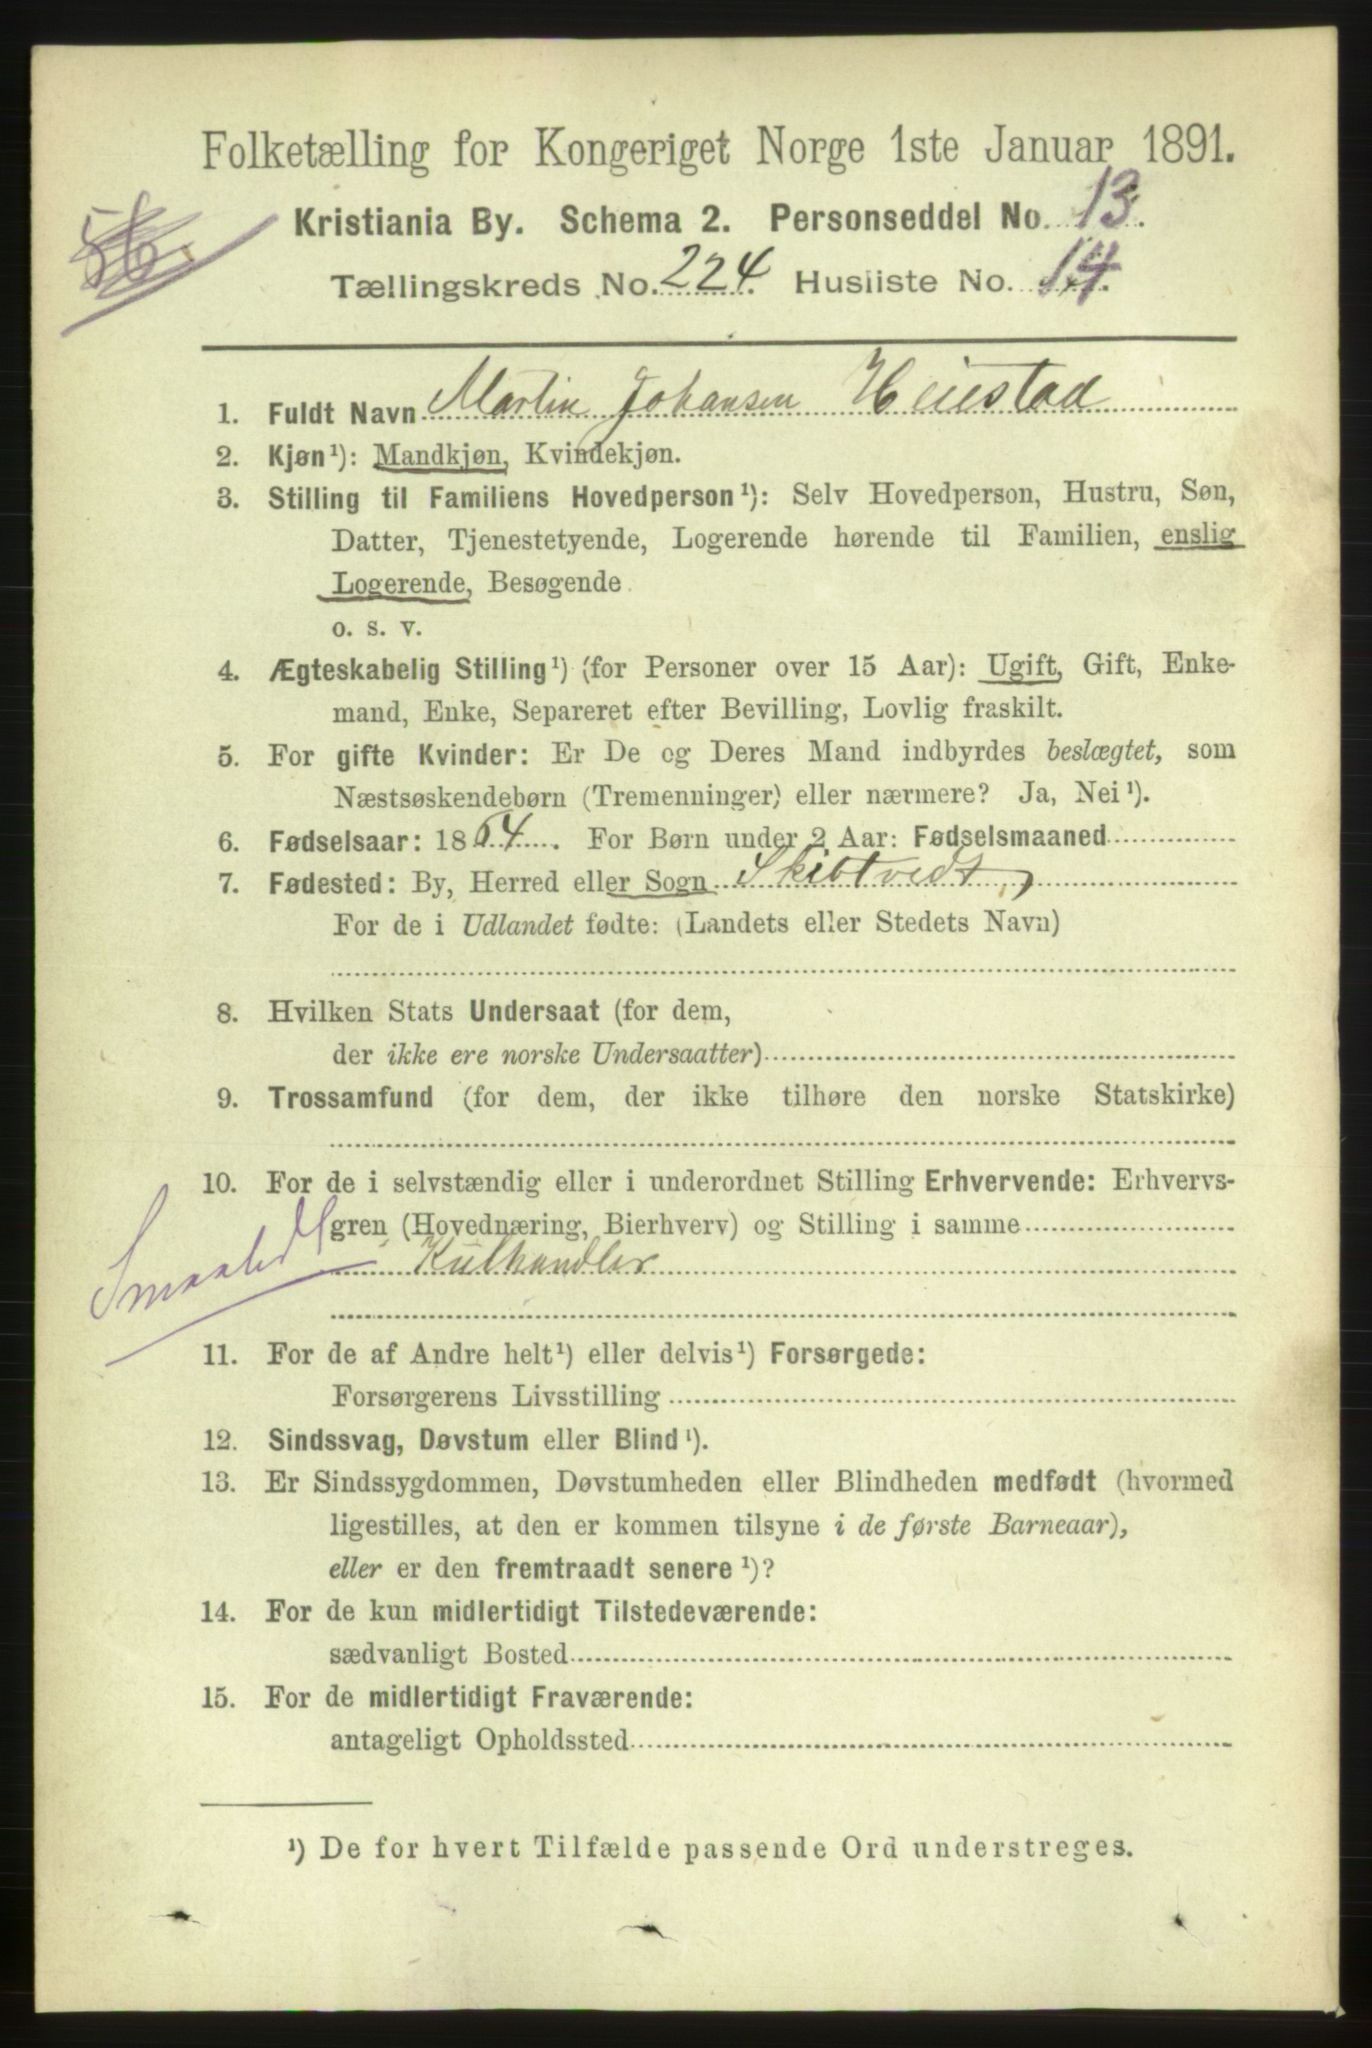 Folketælling for Kongeriget Norge 1ste Januar 1891.
56.
Kristiania By. Schema 2. Personseddel No. 13.
Tællingskreds No. 224. Husliste No. 14.
1. Fuldt Navn Martin Johansen Heiestad
2. Kjøn¹): Mandkjøn, Kvindekjøn.
3. Stilling til Familiens Hovedperson¹): Selv Hovedperson, Hustru, Søn,
Datter, Tjenestetyende, Logerende hørende til Familien, enslig
Logerende, Besøgende
o. s. v.
4. Ægteskabelig Stilling¹) (for Personer over 15 Aar): Ugift, Gift, Enke-
mand, Enke, Separeret efter Bevilling, Lovlig fraskilt.
5. For gifte Kvinder: Er De og Deres Mand indbyrdes beslægtet, som
Næstsøskendebørn (Tremenninger) eller nærmere? Ja, Nei¹).
6. Fødselsaar: 1864. For Børn under 2 Aar: Fødselsmaaned
7. Fødested: By, Herred eller Sogn Skibtvedt,
For de i Udlandet fødte: (Landets eller Stedets Navn)
8. Hvilken Stats Undersaat (for dem,
der ikke ere norske Undersaatter)
9. Trossamfund (for dem, der ikke tilhøre den norske Statskirke)
10. For de i selvstændig eller i underordnet Stilling Erhvervende: Erhvervs-
gren (Hovednæring, Bierhverv) og Stilling i samme
Kulhandler
11. For de af Andre helt¹) eller delvis¹) Forsørgede:
Forsørgerens Livsstilling
12. Sindssvag, Døvstum eller Blind¹).
13. Er Sindssygdommen, Døvstumheden eller Blindheden medfødt (hvormed
ligestilles, at den er kommen tilsyne i de første Barneaar),
eller er den fremtraadt senere¹)?
14. For de kun midlertidigt Tilstedeværende:
sædvanligt Bosted
15. For de midlertidigt Fraværende:
antageligt Opholdssted
¹) De for hvert Tilfælde passende Ord understreges.